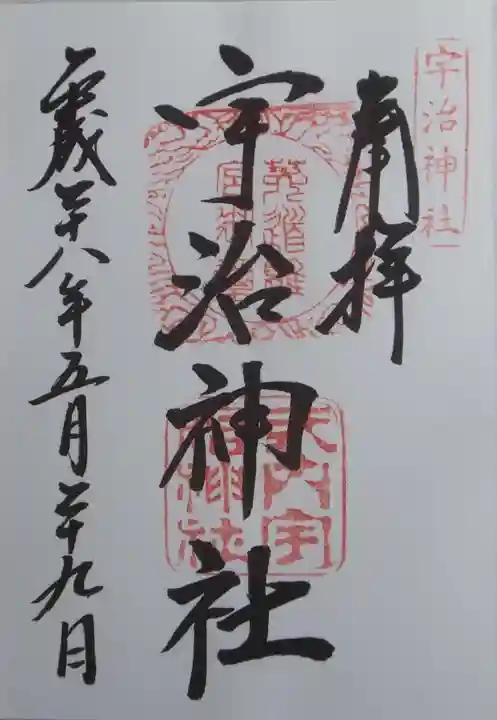 宇治神社
奉拝
宇治神社
式内宇
治神社
平成二十八年五月二十九日